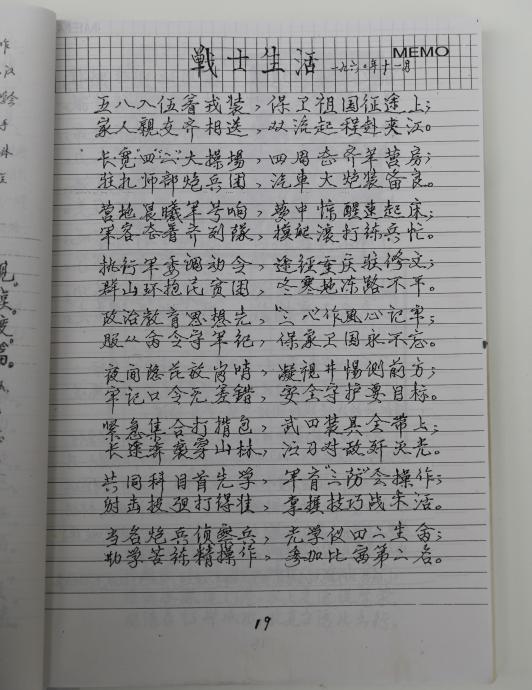 MEMO
战士生活 一九六〇年十一月
五八入伍着戎装，保卫祖国征途上；
家人親友齐相送，双流起程赴夹江。
长宽“四〇〇”大操場，四周志齐羊营房；
驻扎师部炮兵团，汽車大炮装备良。
营地晨曦军号响，梦中惊醒速起床；
军容志着齐列隊，摸爬滚打练兵忙。
执行军委调动令，途经重庆驻修文；
群山环抱民贫困，冬寒地冻路不平。
政治教育思想先，“三心”作风心记牢；
服从命令守军纪，保家卫国永不忘。
夜间隐蔽放岗哨，凝视井惕侧前方；
牢记口令无差错，安全守护要目标。
紧急集合打揹包，武四装具全带上；
长途奔袭穿山林，沾刃对敌歼灭光。
共同科目首先学，军育“三防”会操作；
射击投弹打得准，掌握技巧战术活。
当名炮兵侦察兵，光学仪四〇生命；
勤学苦练精操作，参加比赛第二名。
19